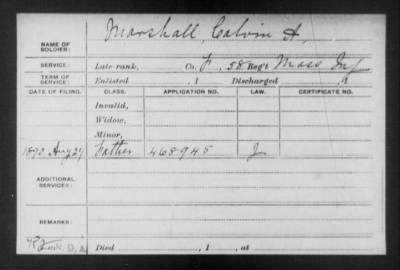 NAME OF SOLDIER: Marshall, Calvin A,
SERVICE: Late rank, Co. F, 58 Reg't Mass Inf
TERM OF SERVICE: Enlisted , 1 Discharged , 1
DATE OF FILING. CLASS. APPLICATION NO. LAW. CERTIFICATE NO.
Invalid,
Widow,
Minor,
1890 Aug 29 Father 468945 J
ADDITIONAL SERVICES:
REMARKS:
Died , 1 , at